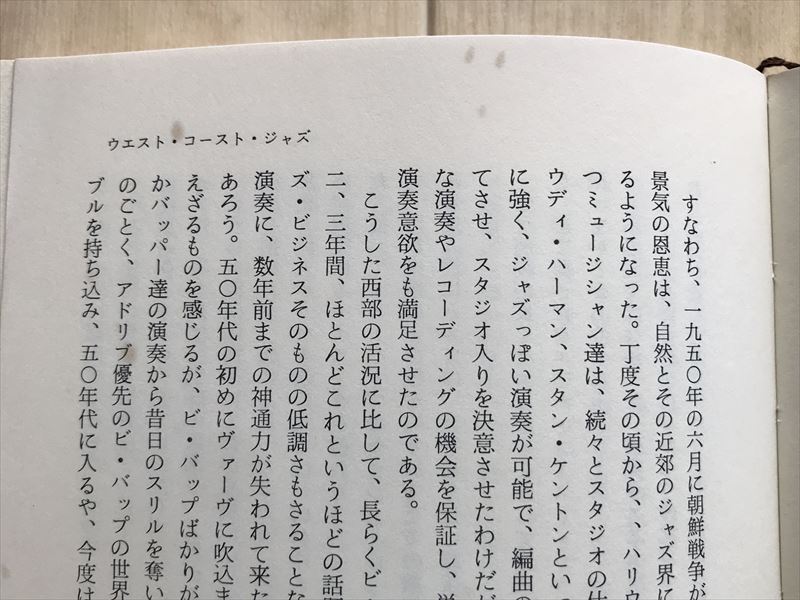 ウエスト・コースト・ジャズ
すなわち、一九五〇年の六月に朝鮮戦争が
景気の恩恵は、自然とその近郊のジャズ界に
るようになった。丁度その頃から、、ハリウ
つミュージシャン達は、続々とスタジオの仕
ウディ・ハーマン、スタン・ケントンといっ
に強く、ジャズっぽい演奏が可能で、編曲の
てさせ、スタジオ入りを決意させたわけだが
な演奏やレコーディングの機会を保証し、
演奏意欲をも満足させたのである。
こうした西部の活況に比して、長らくビ・
二、三年間、ほとんどこれというほどの話
ズ・ビジネスそのものの低調さもさることな
演奏に、数年前までの神通力が失われて来た
あろう。五〇年代の初めにヴァーヴに吹込ま
えざるものを感じるが、ビ・バップばかりが
かバッパー達の演奏から昔日のスリルを奪い
のごとく、アドリブ優先のビ・バップの世界
ブルを持ち込み、五〇年代に入るや、今度は